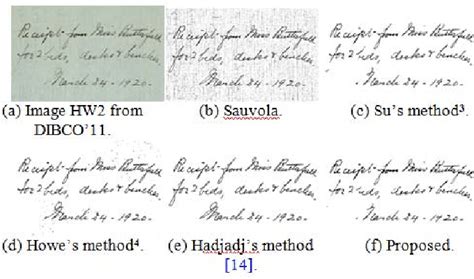 Receipt from Miss Butterfield
for 2 beds, desks & benches
March 24 - 1920 -
Receipt from Miss Butterfield
for 2 beds, desks & benches
March 24 - 1920 -
Receipt from Miss Butterfield
for 2 beds, desks & benches
March 24 - 1920 -
(a) Image HW2 from
DIBCO'11.
(b) Sauvola.
(c) Su's method³.
Receipt from Miss Butterfield
for 2 beds, desks & benches
March 24 - 1920 -
Receipt from Miss Butterfield
for 2 beds, desks & benches
March 24 - 1920 -
Receipt from Miss Butterfield
for 2 beds, desks & benches
March 24 - 1920 -
(d) Howe's method⁴.
(e) Hadjadj's method
[14].
(f) Proposed.